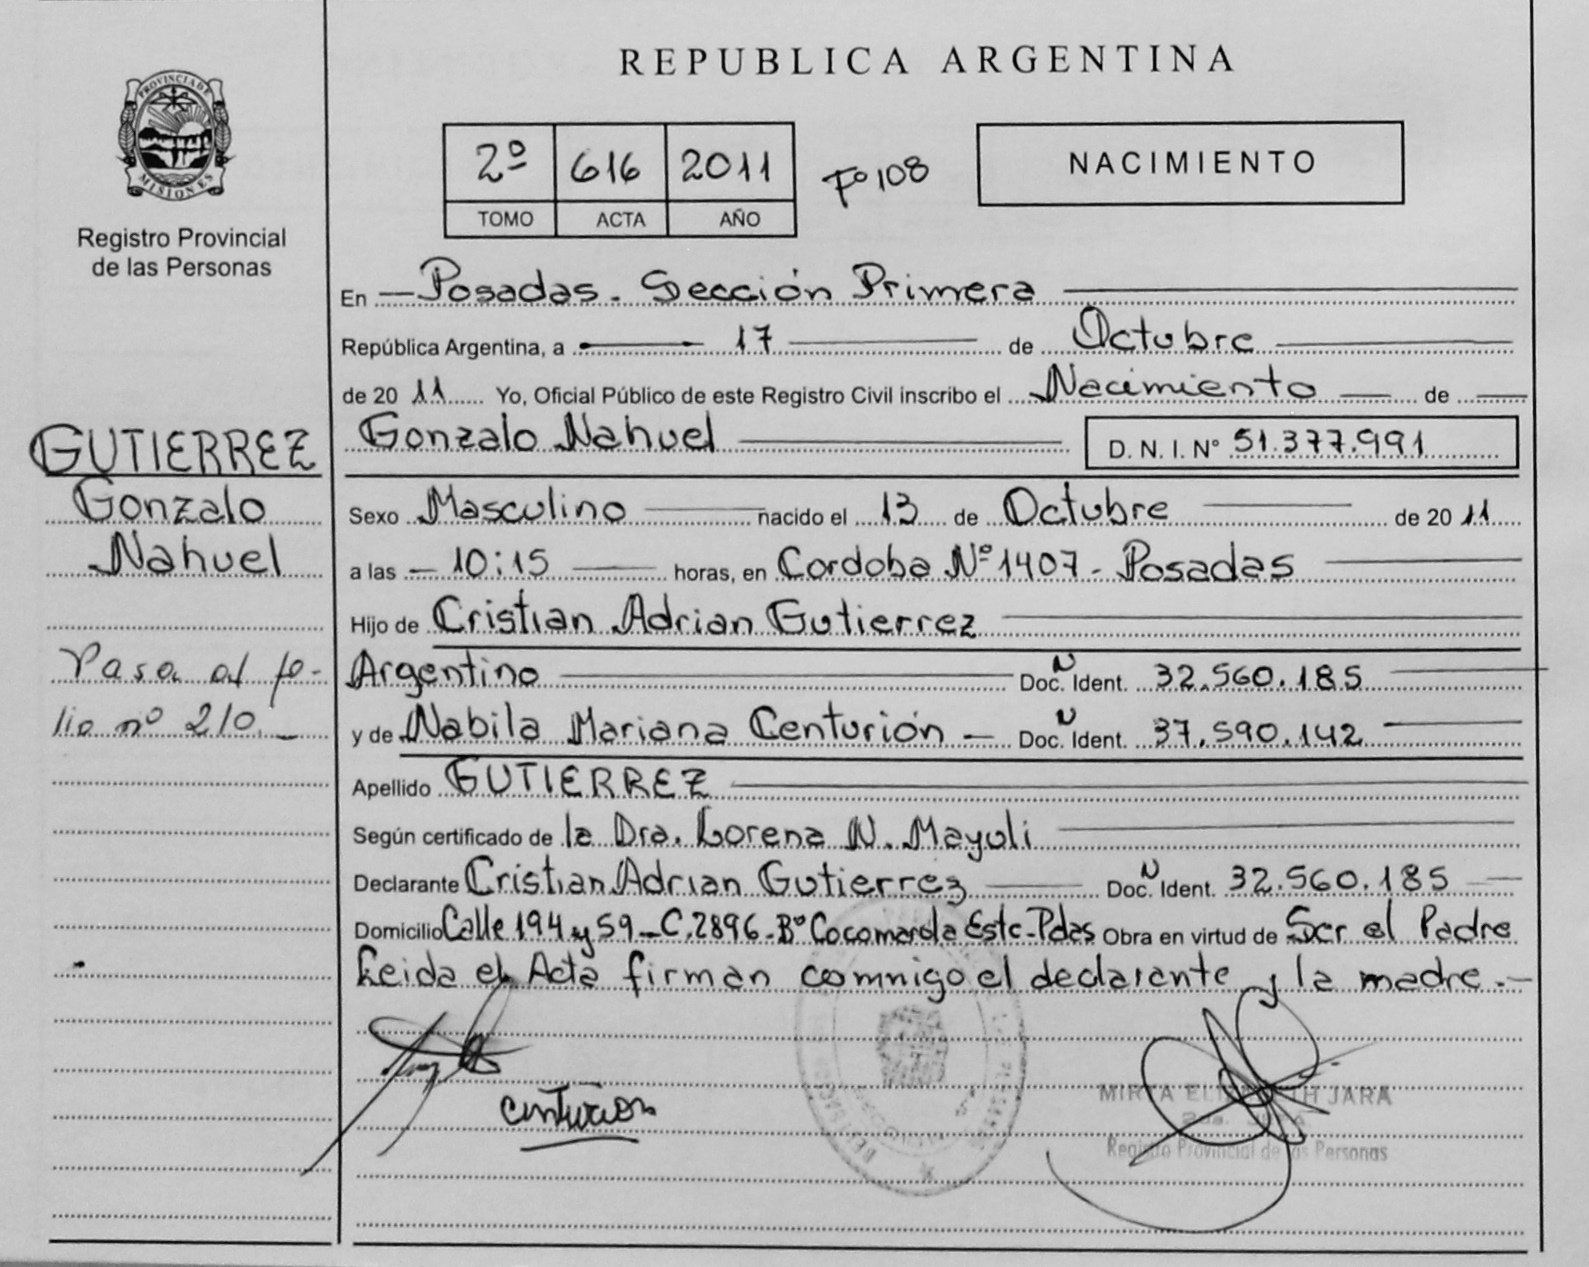 REPUBLICA ARGENTINA
PROVINCIA DE
MISIONES
Registro Provincial
de las Personas
2º 616 2011
TOMO ACTA AÑO
Fº 108
NACIMIENTO
En Posadas. Sección Primera
República Argentina, a 17 de Octubre
de 20 11 Yo, Oficial Público de este Registro Civil inscribo el Nacimiento de
Gonzalo Nahuel D. N. I. Nº 51.377.991
GUTIERREZ
Gonzalo
Nahuel
Pasa al fo-
lio nº 210.
Sexo Masculino nacido el 13 de Octubre de 20 11
a las 10:15 horas, en Cordoba Nº 1407 - Posadas
Hijo de Cristian Adrian Gutierrez
Argentino Doc. Ident. 32.560.185
y de Nabila Mariana Centurión Doc. Ident. 37.590.142
Apellido GUTIERREZ
Según certificado de la Dra. Lorena N. Mayoli
Declarante Cristian Adrian Gutierrez Doc. Ident. 32.560.185
Domicilio Calle 194 y 59 - C. 2896 - Bº Cocomarola Este - Pdas Obra en virtud de Ser el Padre
Leida el Acta firman comnigo el declarante y la madre.-
Centurion
MIRTA JARA
Registro Provincial de las Personas